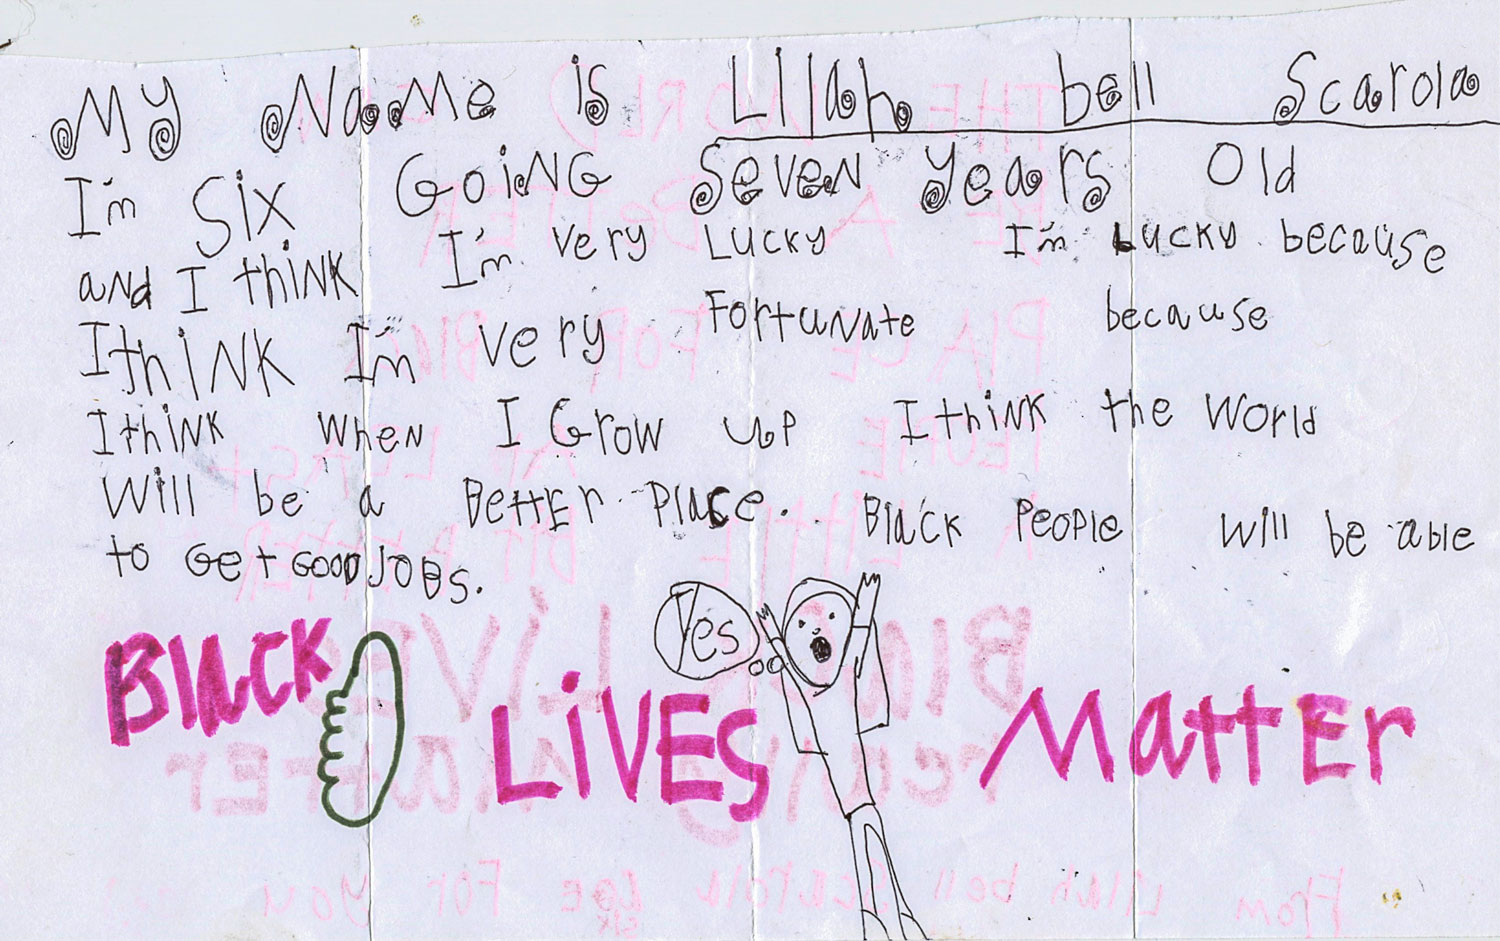 My Name is Lilah bell Scarola
I'm Six Going Seven Years Old
and I think I'm very Lucky I'm Lucky because
I think I'm very Fortunate because
I think when I Grow up I think the World
Will be a Better Place. Black People Will be able
to Get Good Jobs.
Yes
Black LiVES Matter